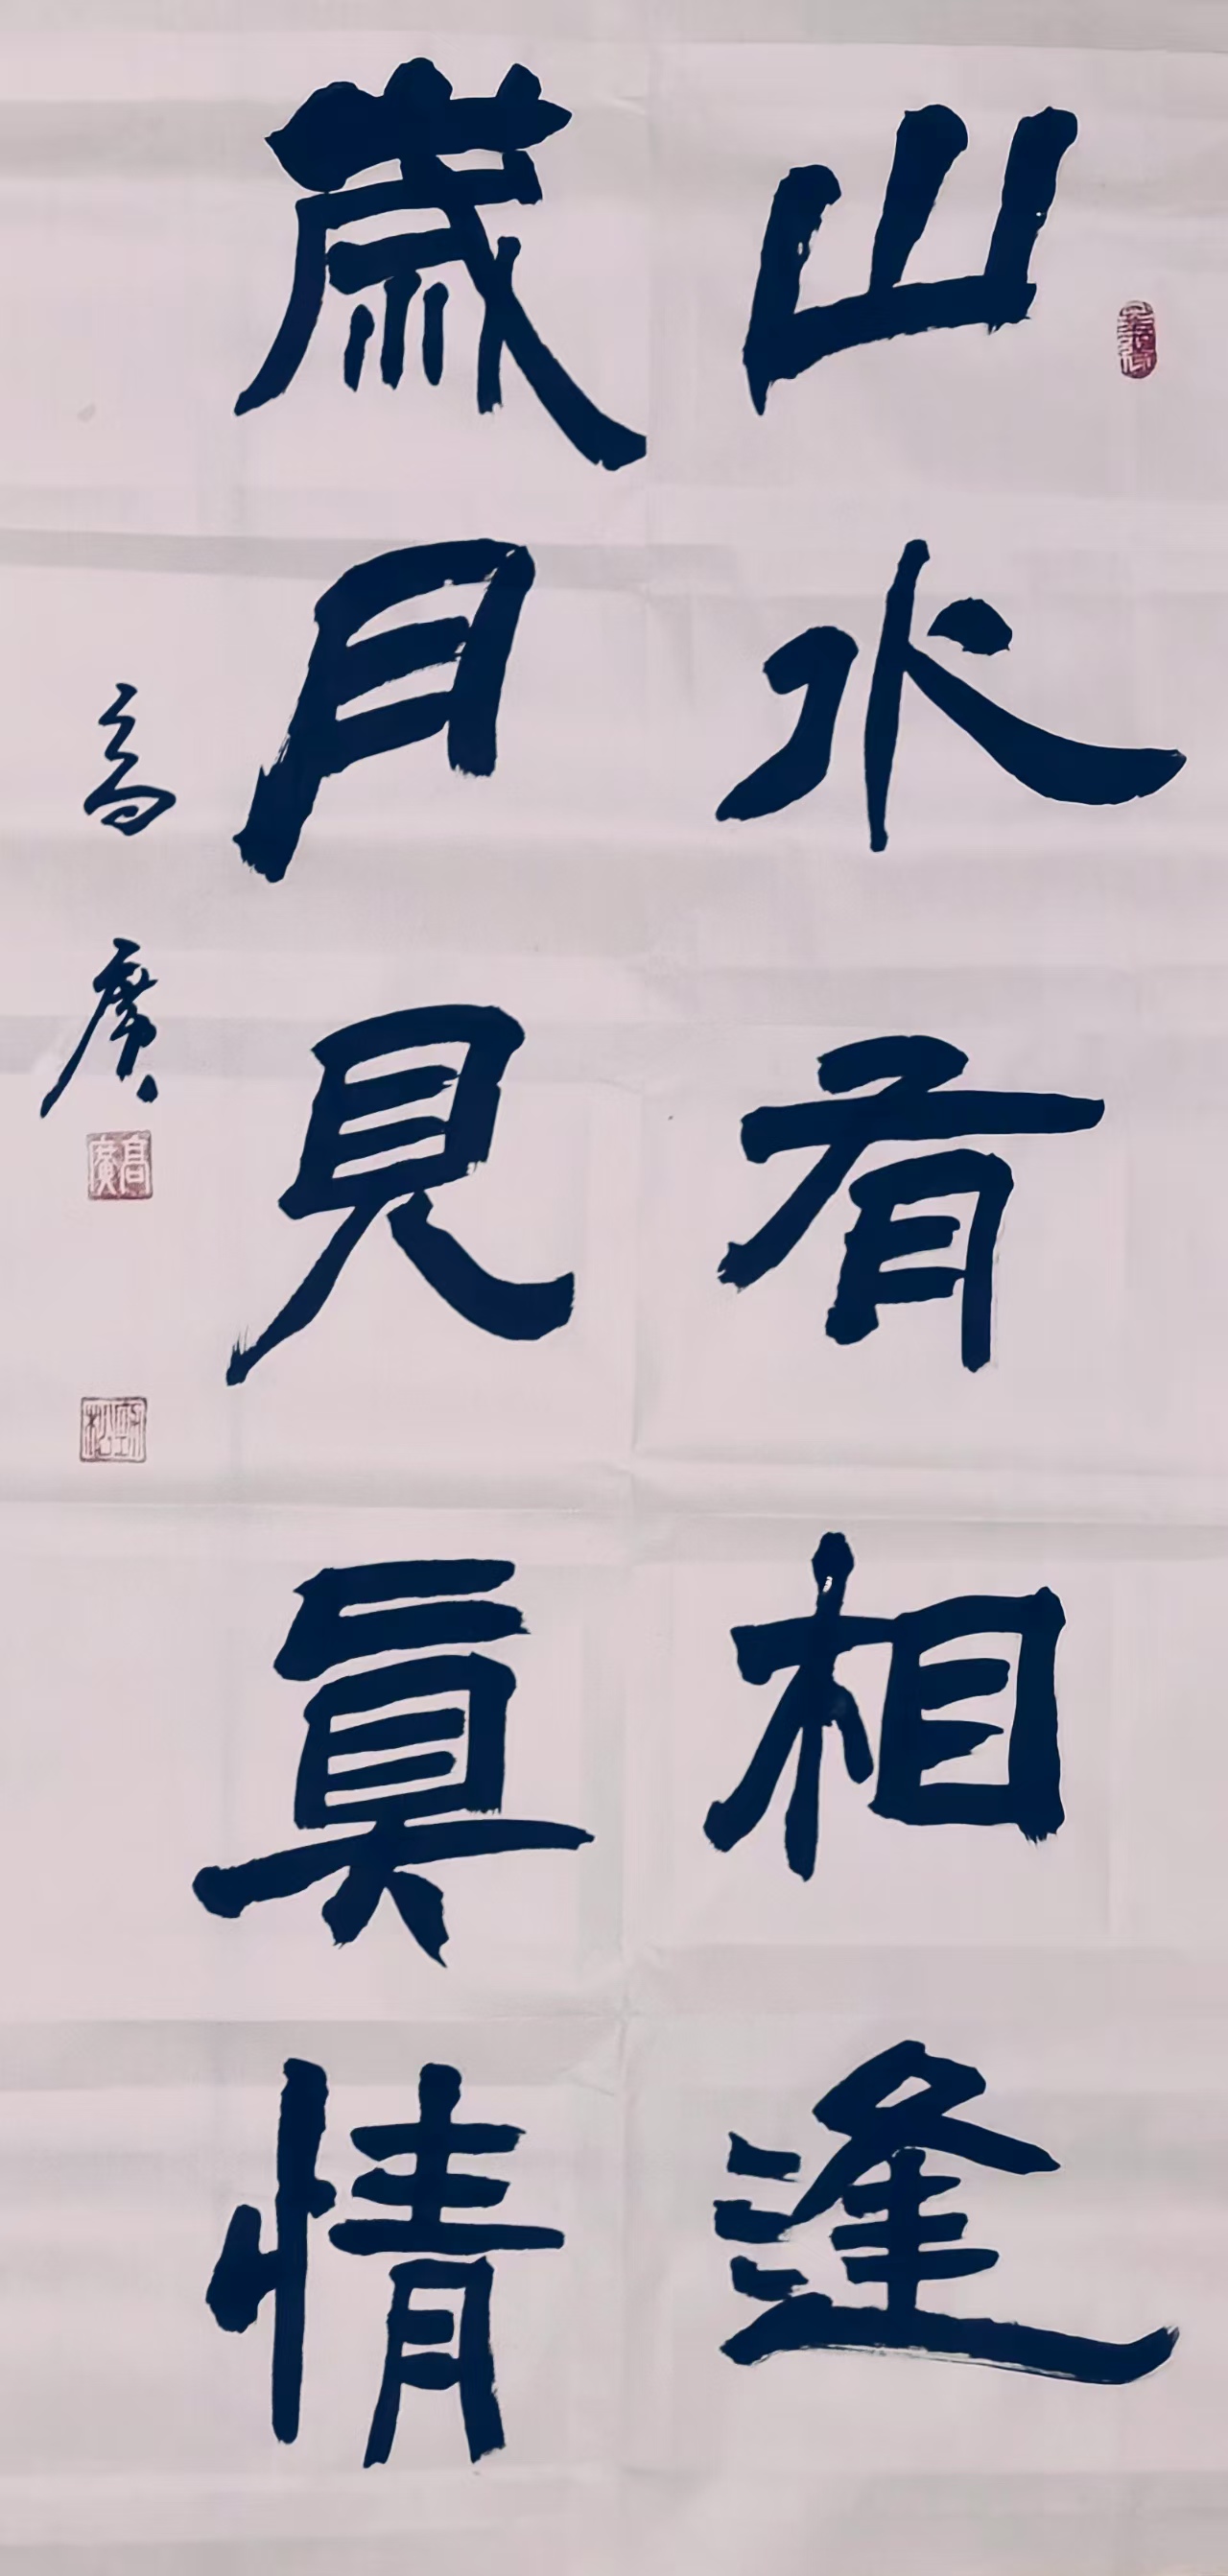 山水有相逢
歲月見真情
高廣
高廣